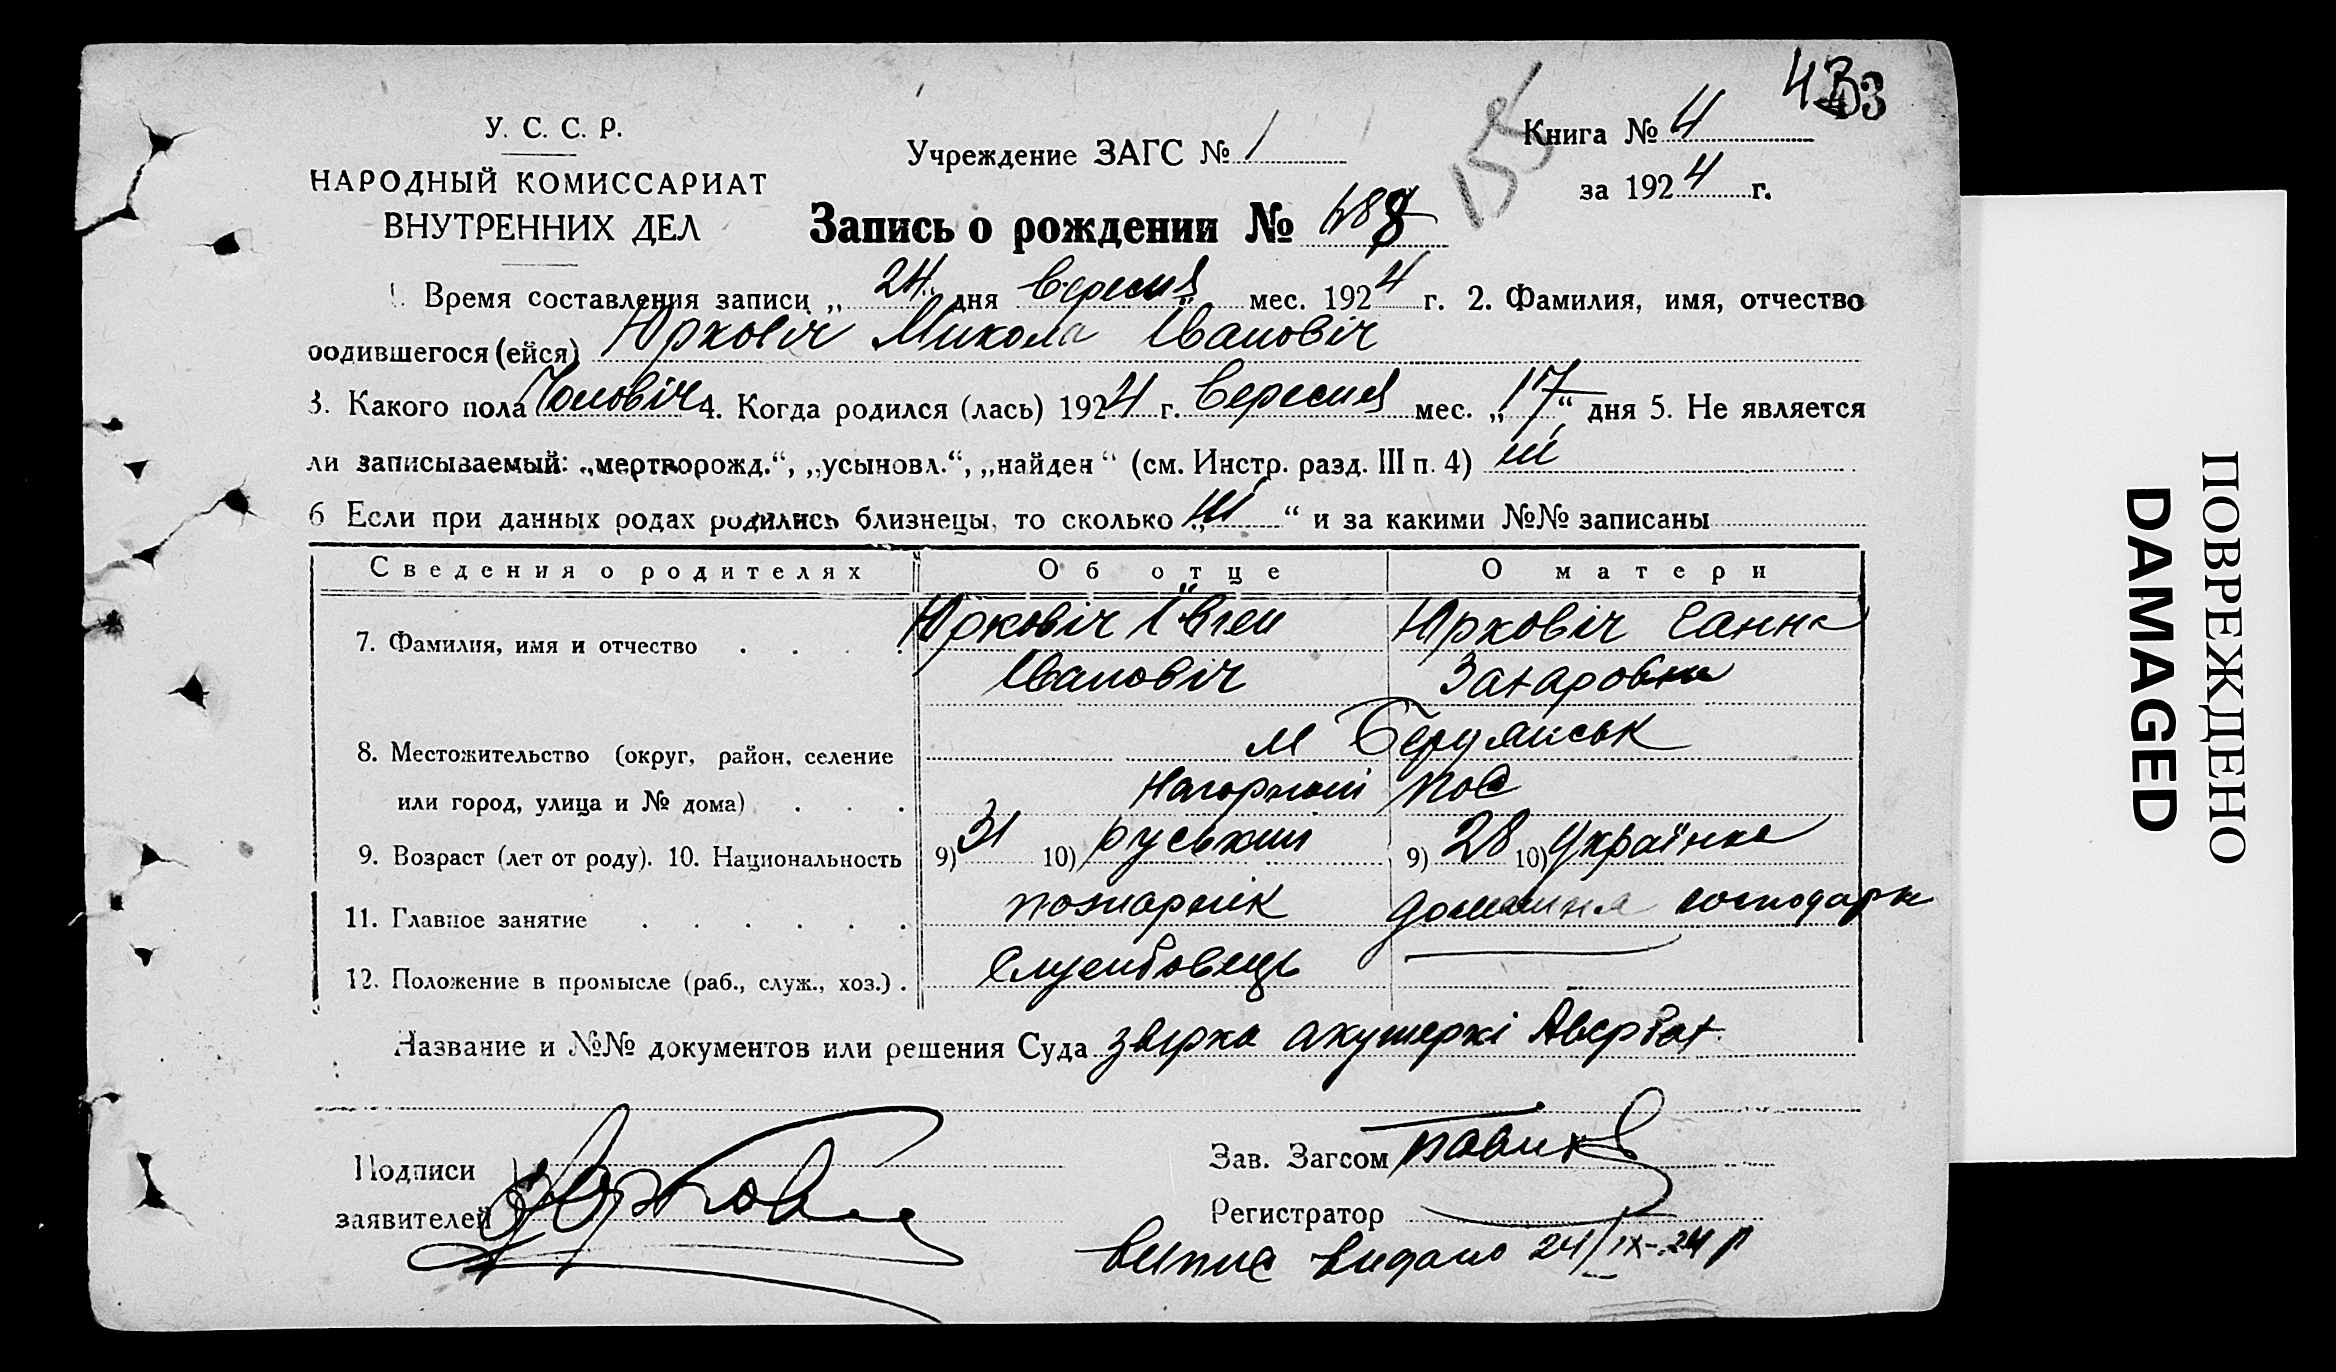 433
У. С. С. Р.
НАРОДНЫЙ КОМИССАРИАТ
ВНУТРЕННИХ ДЕЛ
Учреждение ЗАГС № 1
155
Книга № 4
за 1924 г.
Запись о рождении № 688
1. Время составления записи „24“ дня вересня мес. 1924 г. 2. Фамилия, имя, отчество
родившегося (ейся) Юрковіч Микола Івановіч
3. Какого пола Чоловіч 4. Когда родился (лась) 1924 г. Вересня мес. „17“ дня 5. Не является
ли записываемый: „мертворожд.“, „усыновл.“, „найден“ (см. Инстр. разд. III п. 4) ні
6 Если при данных родах родились близнецы, то сколько „ні“ и за какими №№ записаны
Сведения о родителях Об отце О матери
7. Фамилия, имя и отчество Юрковіч Івген Юрковіч Ганна
Івановіч Захаровна
8. Местожительство (округ, район, селение м Бердянськ
или город, улица и № дома) Нагорний пос
9. Возраст (лет от роду). 10. Национальность 9) 31 10) руський 9) 28 10) Українка
11. Главное занятие пожарнік домашня господарк
12. Положение в промысле (раб., служ., хоз.) службовець
Название и №№ документов или решения Суда звірка акушеркі Авербах
Подписи
заявителей
Зав. Загсом
Регистратор
випис видано 24/IX-24 р
ПОВРЕЖДЕНО
DAMAGED